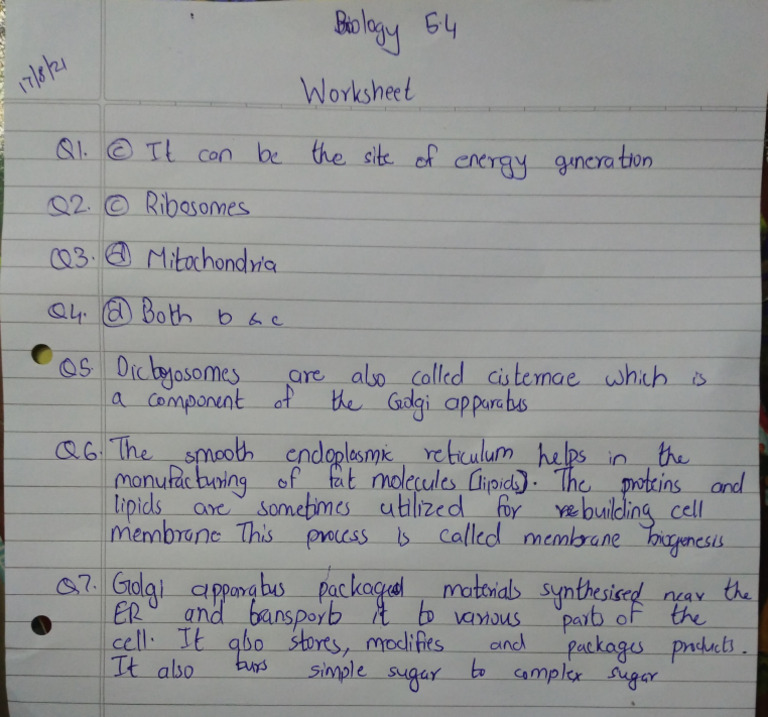 Biology 5.4
17/8/21
Worksheet
Q1. ⓒ It can be the site of energy generation
Q2. ⓒ Ribosomes
Q3. ⓓ Mitochondria
Q4. ⓓ Both b & c
Q5. Dictyosomes are also called cisternae which is
a component of the Golgi apparatus
Q6. The smooth endoplasmic reticulum helps in the
manufacturing of fat molecules [lipids]. The proteins and
lipids are sometimes utilized for rebuilding cell
membrane This process is called membrane biogenesis
Q7. Golgi apparatus packaged materials synthesised near the
ER and transports it to various parts of the
cell. It also stores, modifies and packages products.
It also turs simple sugar to complex sugar